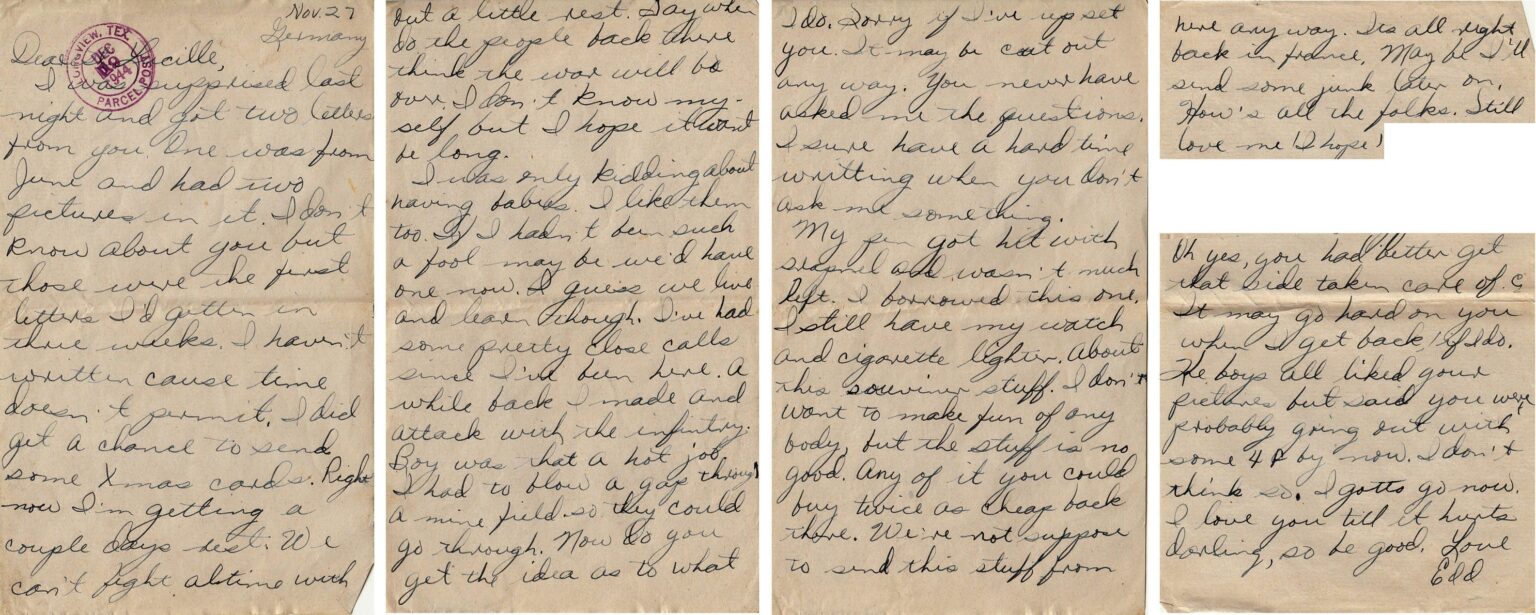 Nov. 27
Germany
LONGVIEW, TEX.
DEC
1944
PARCEL POST
Dear Lucille,
I was surprised last
night and got two letters
from you. One was from
June and had two
pictures in it. I don't
know about you but
those were the first
letters I'd gotten in
three weeks. I haven't
written cause time
doesn't permit. I did
get a chance to send
some Xmas cards. Right
now I'm getting a
couple days rest. We
can't fight altime with
out a little rest. Say when
do the people back there
think the war will be
over. I don't know my-
self but I hope it wont
be long.
I was only kidding about
having babies. I like them
too. If I hadn't been such
a fool may be we'd have
one now. I guess we live
and learn though. I've had
some pretty close calls
since I've been here. A
while back I made and
attack with the infintry.
Boy was that a hot job.
I had to blow a gap through
a mine field so they could
go through. Now do you
get the idea as to what
I do. Sorry if I've up set
you. It may be cut out
any way. You never have
asked me the questions.
I sure have a hard time
writting when you don't
ask me something.
My pen got hit with
srapnel and wasn't much
left. I borrowed this one.
I still have my watch
and cigarette lighter. About
this souviner stuff. I don't
want to make fun of any
body, but the stuff is no
good. Any of it you could
buy twice as cheap back
there. We're not suppose
to send this stuff from
here any way. Its all right
back in france. May be I'll
send some junk later on.
How's all the folks. Still
love me (I hope)
Oh yes, you had better get
that side taken care of.
It may go hard on you
when I get back, if I do.
The boys all liked your
pictures but said you were
probably going out with
some 4F by now. I don't
think so. I gotto go now.
I love you till it hurts
darling, so be good. Love
Edd